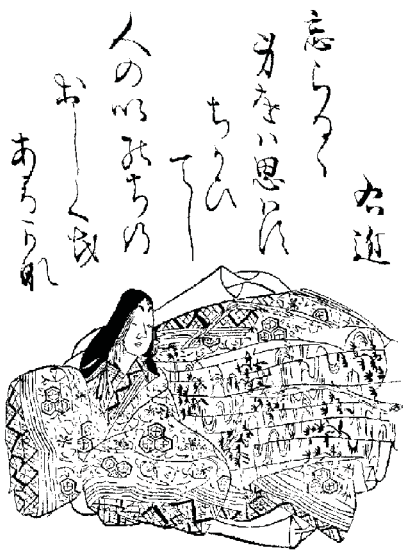 右近
忘らるゝ
身をハ思はす
ちかひ
てし
人のいのちの
おしくも
あるかな